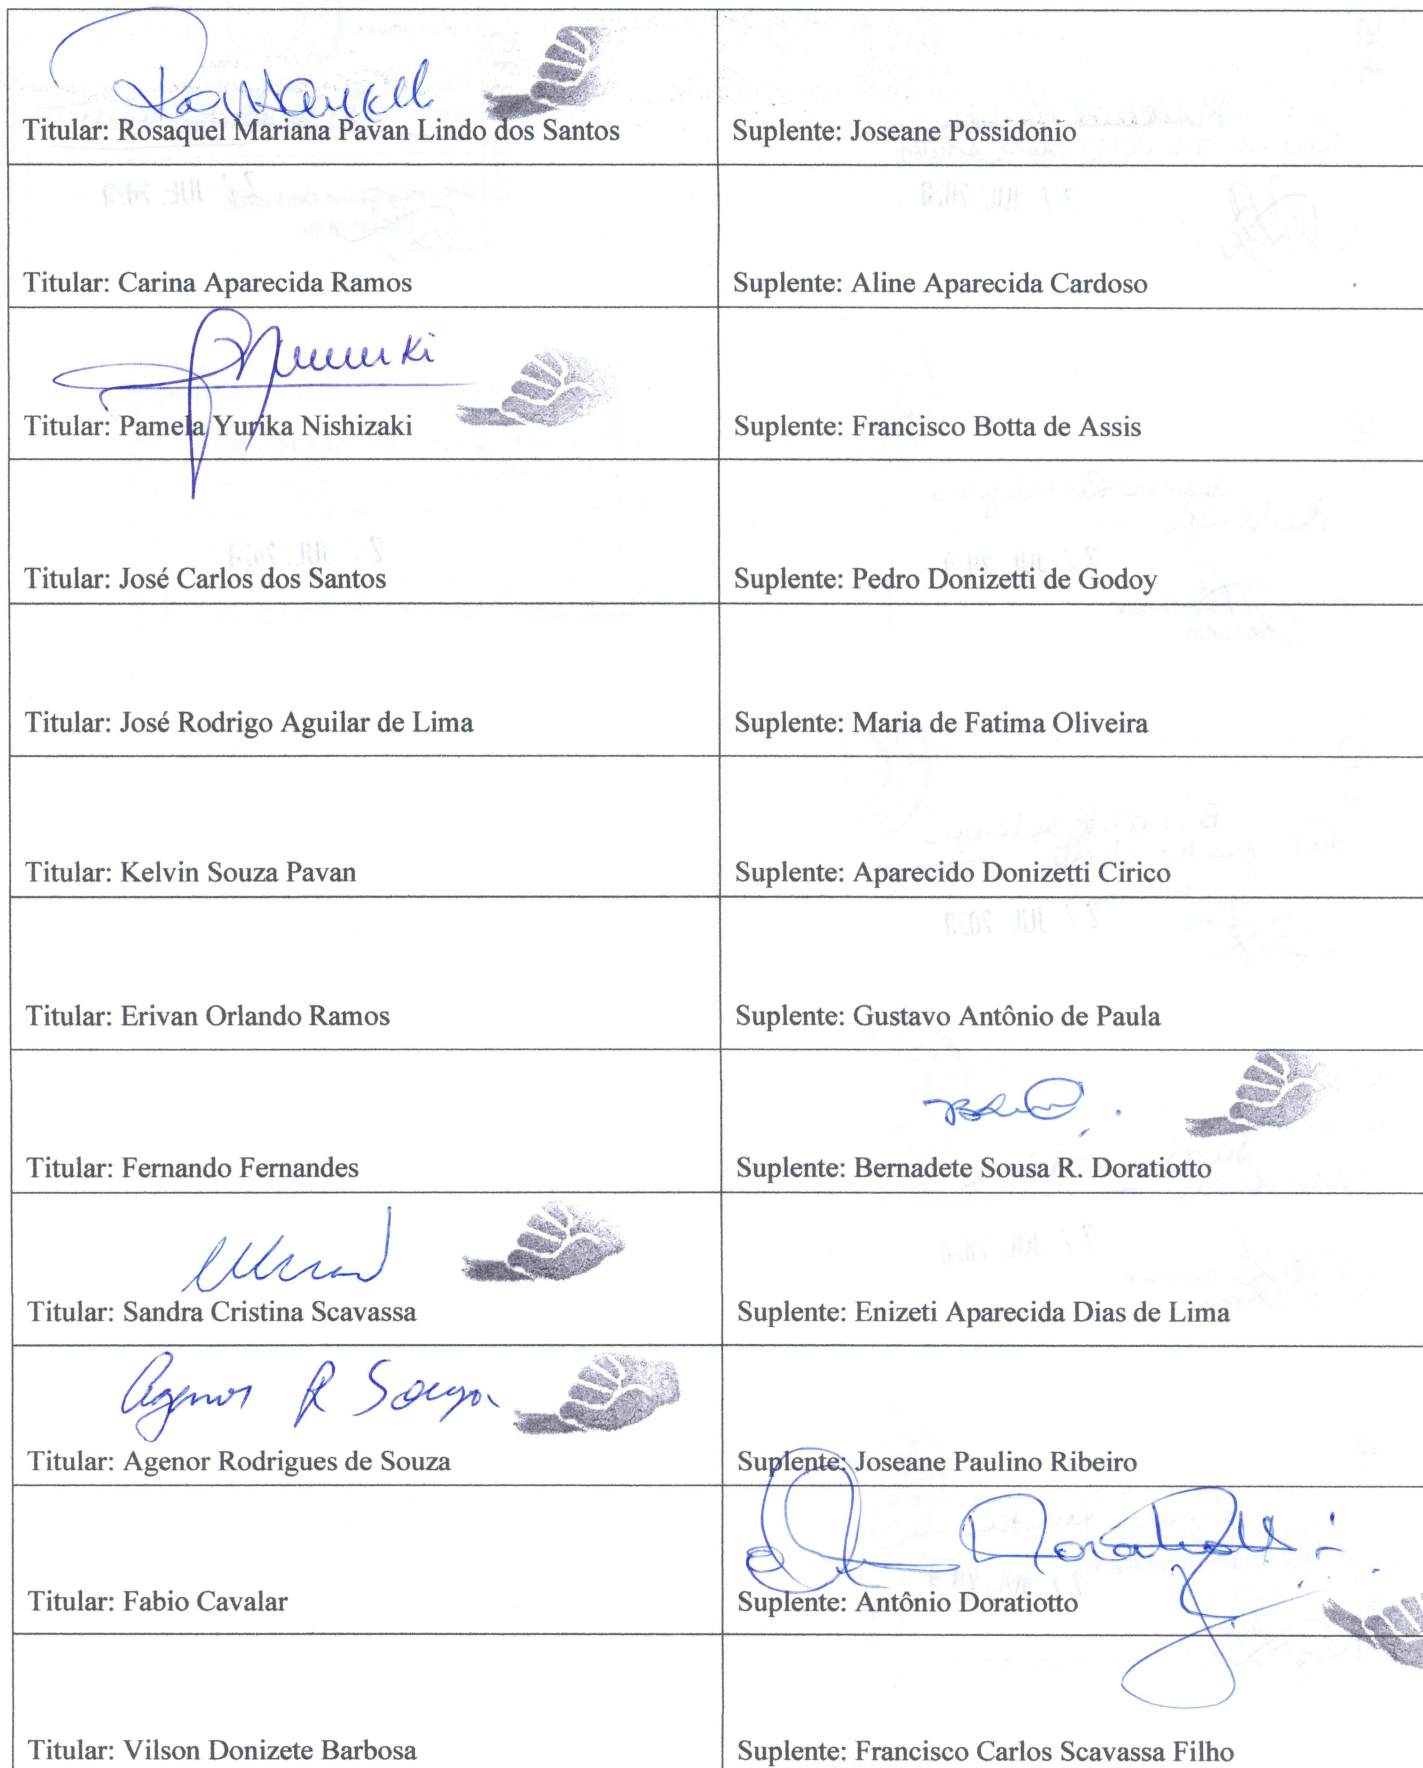 Titular: Rosaquel Mariana Pavan Lindo dos Santos
Suplente: Joseane Possidonio
Titular: Carina Aparecida Ramos
Suplente: Aline Aparecida Cardoso
Titular: Pamela Yurika Nishizaki
Suplente: Francisco Botta de Assis
Titular: José Carlos dos Santos
Suplente: Pedro Donizetti de Godoy
Titular: José Rodrigo Aguilar de Lima
Suplente: Maria de Fatima Oliveira
Titular: Kelvin Souza Pavan
Suplente: Aparecido Donizetti Cirico
Titular: Erivan Orlando Ramos
Suplente: Gustavo Antônio de Paula
Titular: Fernando Fernandes
Suplente: Bernadete Sousa R. Doratiotto
Titular: Sandra Cristina Scavassa
Suplente: Enizeti Aparecida Dias de Lima
Agenor R Souza
Titular: Agenor Rodrigues de Souza
Suplente: Joseane Paulino Ribeiro
Titular: Fabio Cavalar
Suplente: Antônio Doratiotto
Titular: Vilson Donizete Barbosa
Suplente: Francisco Carlos Scavassa Filho